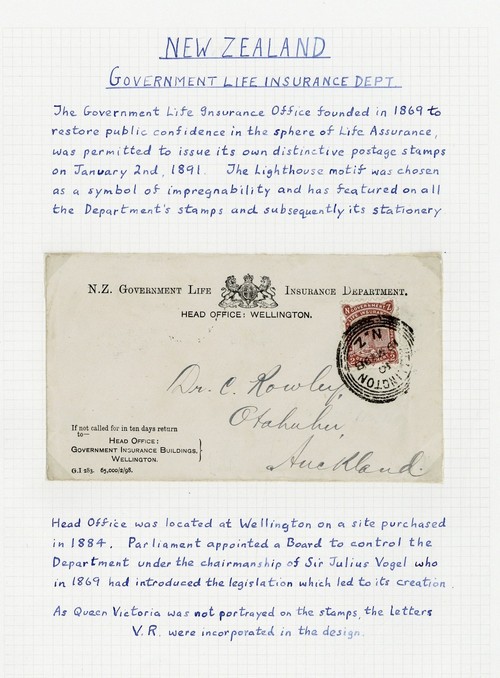 NEW ZEALAND
GOVERNMENT LIFE INSURANCE DEPT.
The Government Life Insurance Office founded in 1869 to
restore public confidence in the sphere of Life Assurance,
was permitted to issue its own distinctive postage stamps
on January 2nd, 1891. The Lighthouse motif was chosen
as a symbol of impregnability and has featured on all
the Department's stamps and subsequently its stationery
N.Z. GOVERNMENT LIFE INSURANCE DEPARTMENT.
HEAD OFFICE: WELLINGTON.
WELLINGTON
N.Z
Dr. C. Rowley,
Otahuhu,
Auckland.
If not called for in ten days return
to—
HEAD OFFICE:
GOVERNMENT INSURANCE BUILDINGS,
WELLINGTON.
G.I 283. 65,000/2/98.
Head Office was located at Wellington on a site purchased
in 1884. Parliament appointed a Board to control the
Department under the chairmanship of Sir Julius Vogel who
in 1869 had introduced the legislation which led to its creation.
As Queen Victoria was not portrayed on the stamps, the letters
V.R. were incorporated in the design.